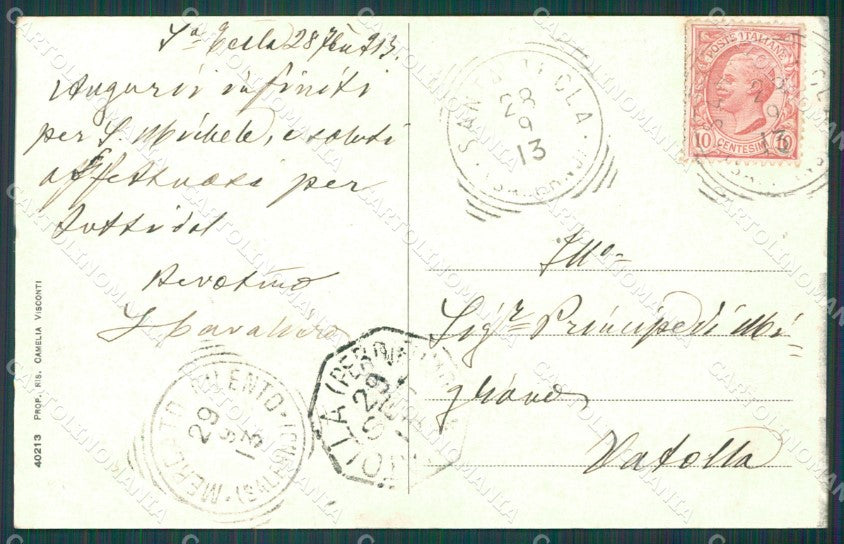 Sa Tecla 28 7bre 913.
Auguri infiniti
per S. Michele, e saluti
affettuosi per
tutti dal
Devotmo
40213 PROP. RIS. CAMELIA VISCONTI
SANTA TECLA
(SALERNO)
28 9 13
POSTE ITALIANE
10 CENTESIMI 10
28 9 13
Illmo
Sigr Principe di Mi-
grano
Vatolla
MERCATO CILENTO (SALERNO)
29 9 13
(PERDIFUMO)
29
CARTOLINOMANIA